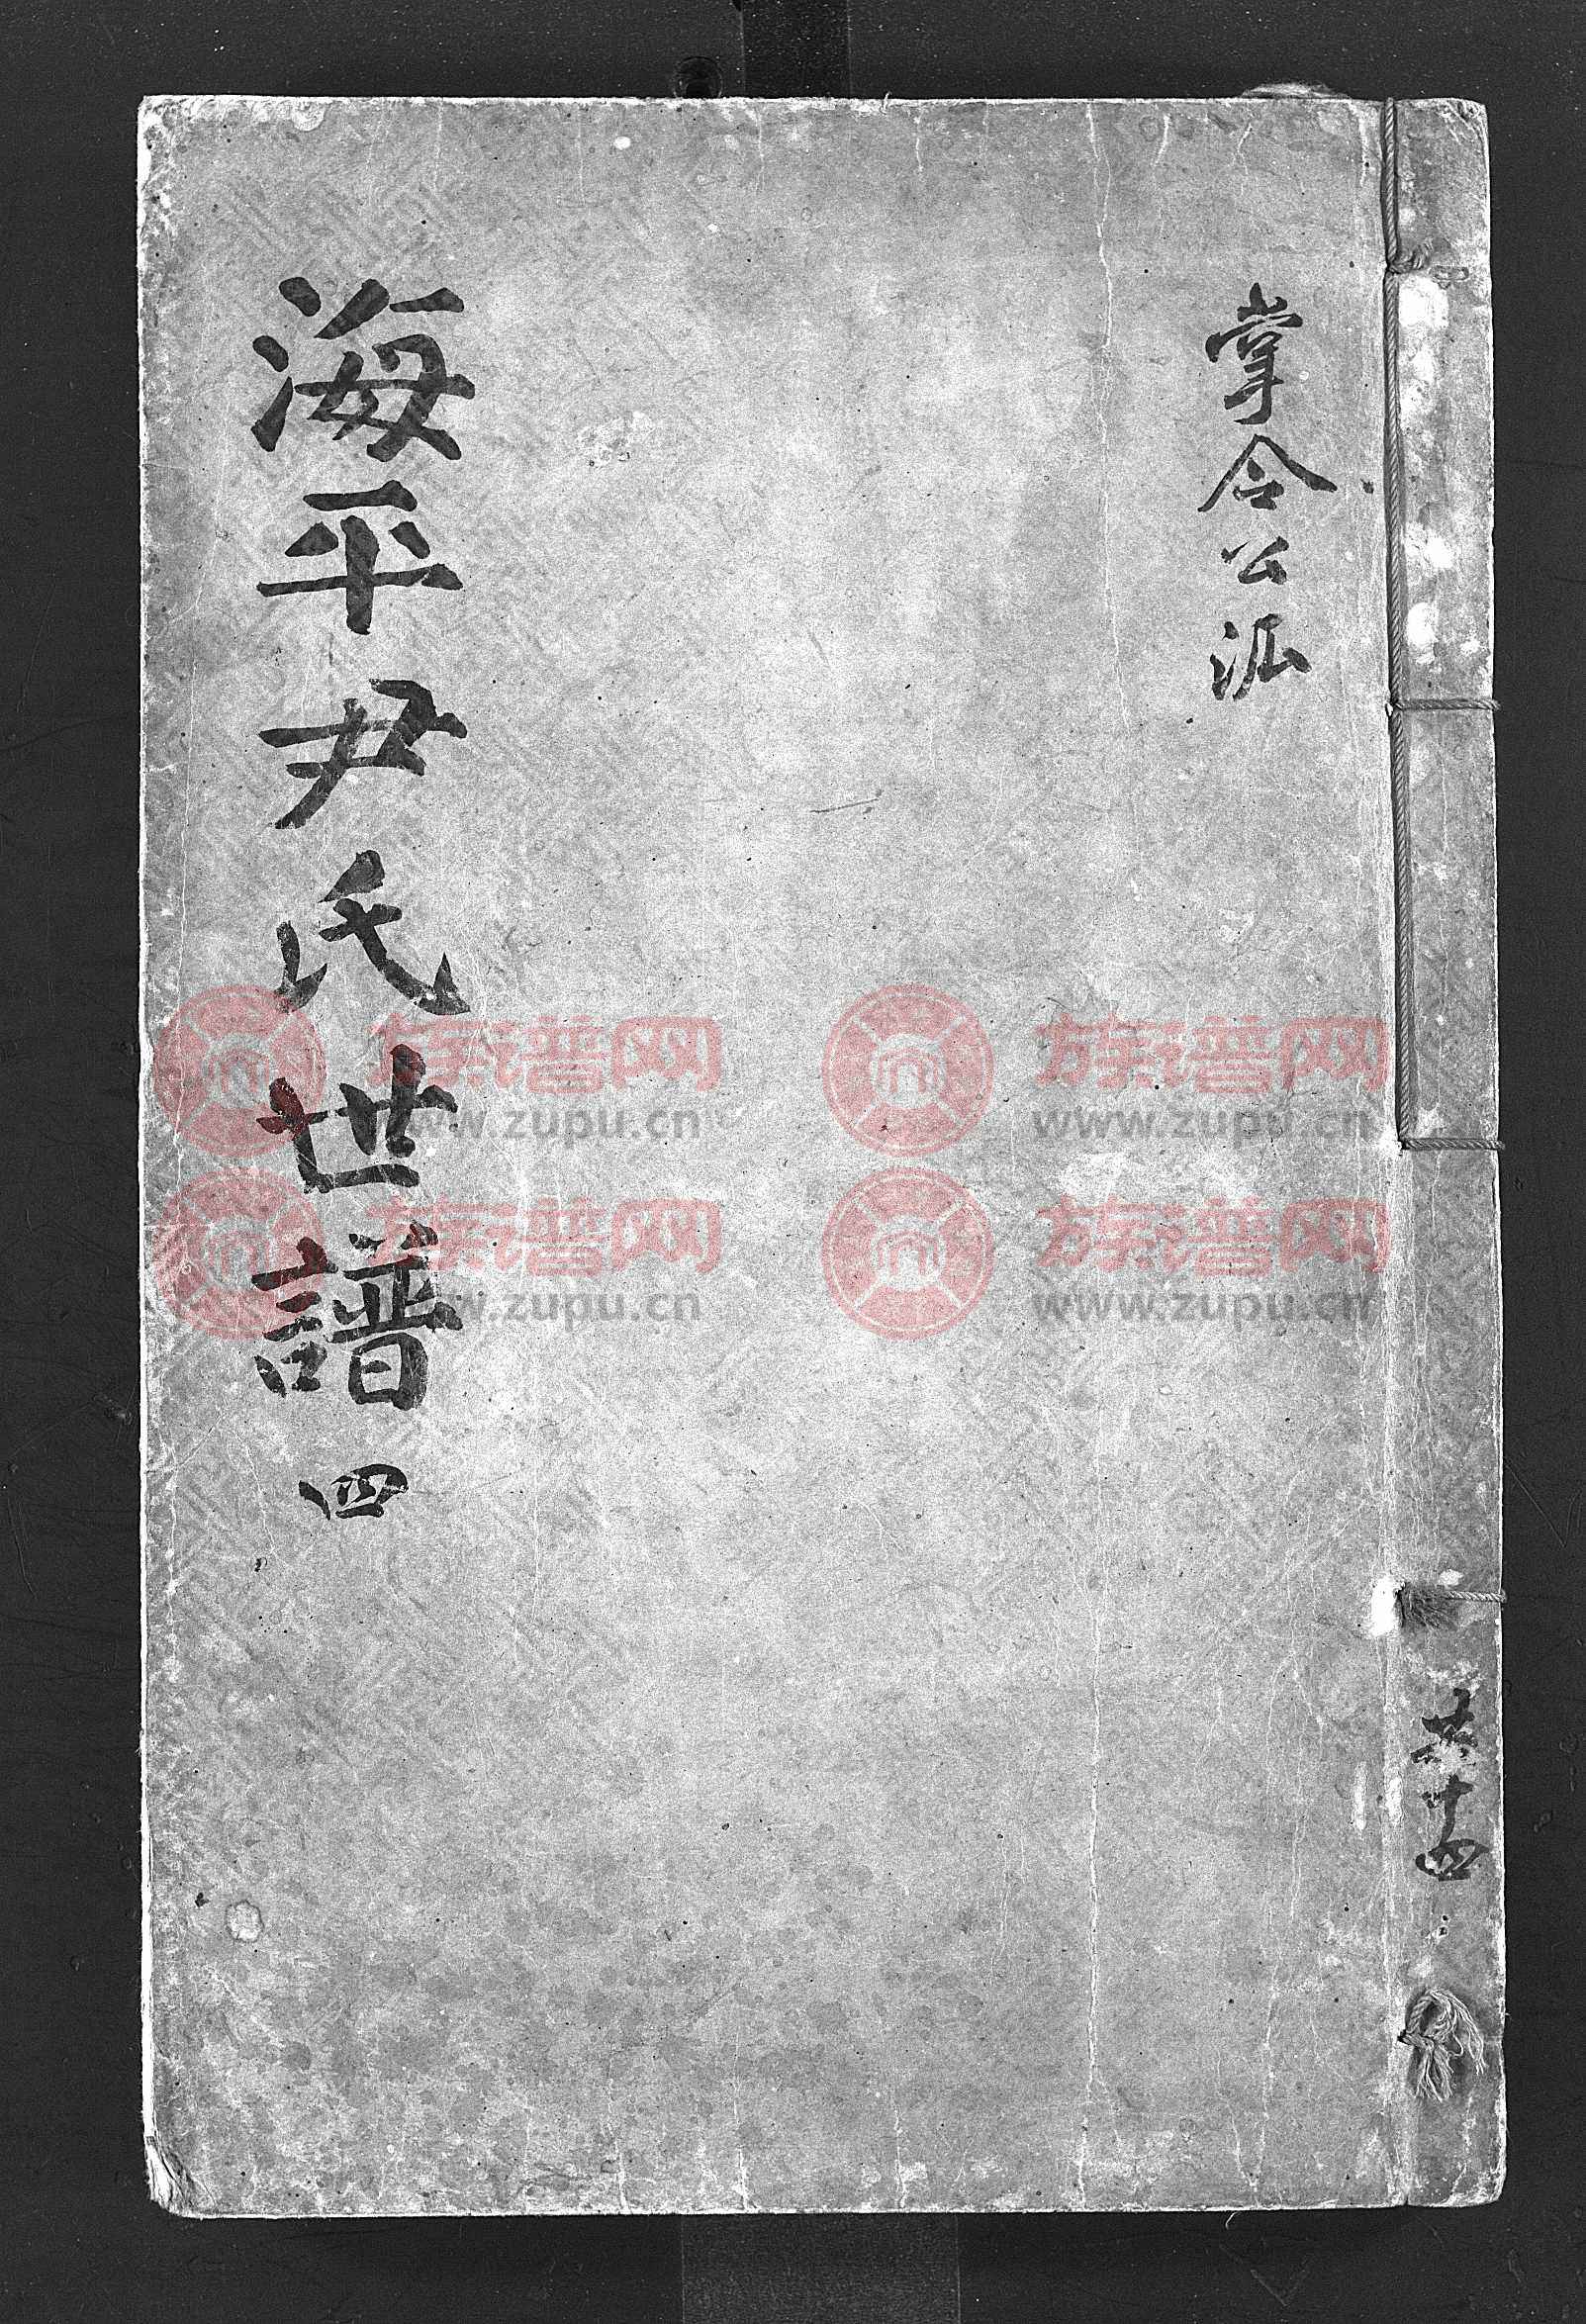 掌令公派
海平尹氏世譜 四
共十四
族谱网 www.zupu.cn
族谱网 www.zupu.cn
族谱网 www.zupu.cn
族谱网 www.zupu.cn